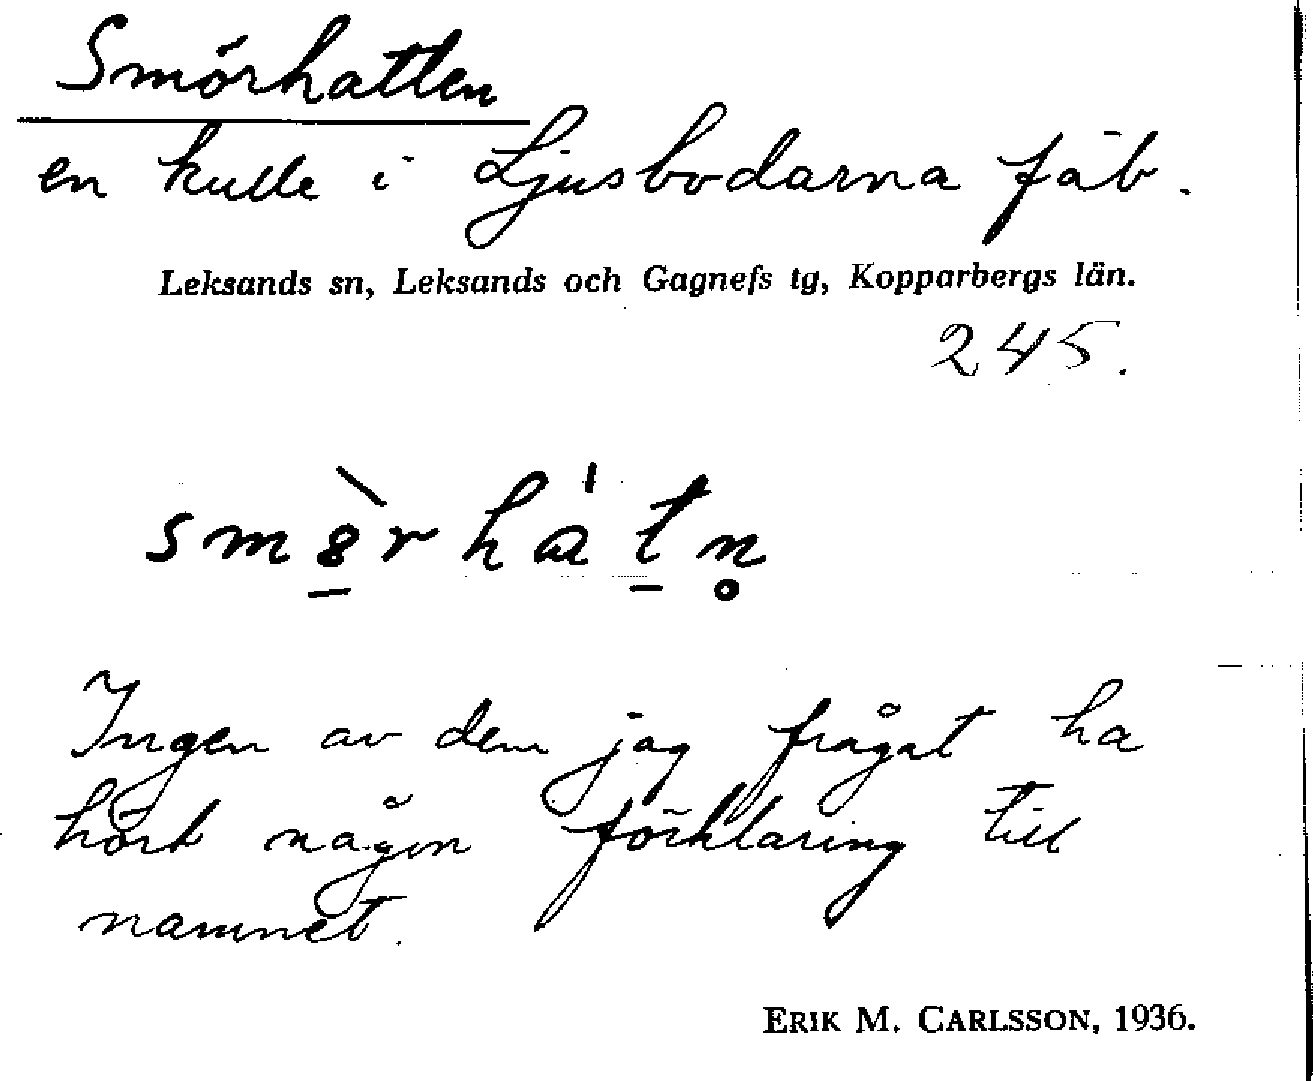 Smörhatten
en kulle i Ljusbodarna fäb.
Leksands sn, Leksands och Gagnefs tg, Kopparbergs län.
245.
smàrhátn̥
Ingen av dem jag frågat ha
hört någon förklaring till
namnet.
ERIK M. CARLSSON, 1936.